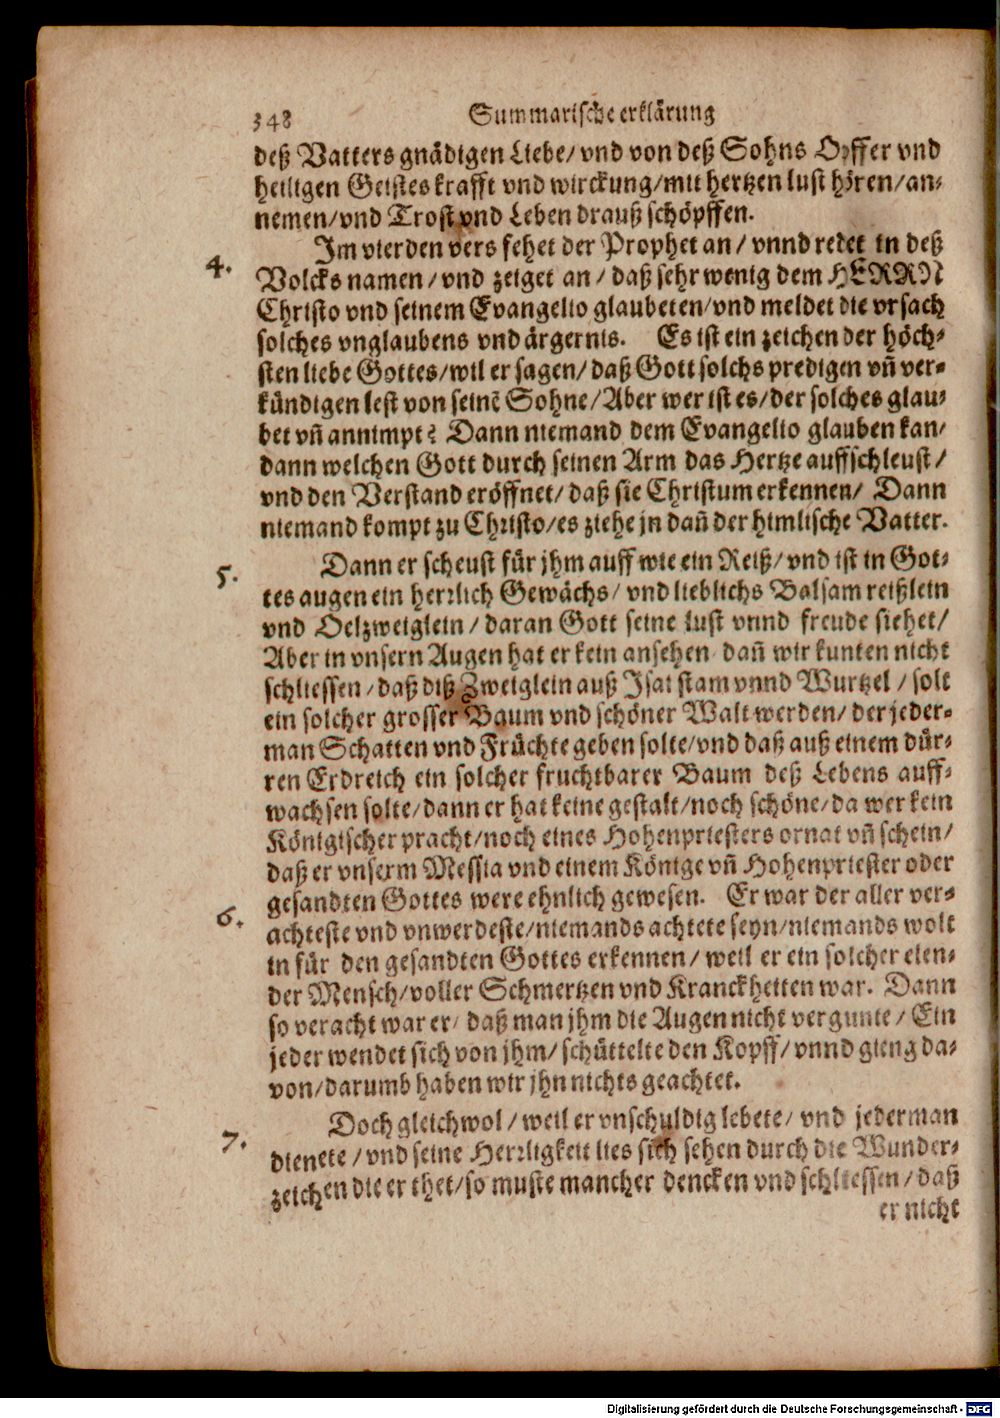 348 Summarische erklärung
deß Vatters gnädigen Liebe/ vnd von deß Sohns Opffer vnd
heiligen Geistes krafft vnd wirckung/mit hertzen lust hören/an-
nemen/vnd Trost vnd Leben drauß schöpffen.
Im vierden vers fehet der Prophet an/ vnnd redet in deß
4. Volcks namen/ vnd zeiget an/ daß sehr wenig dem HERRN
Christo vnd seinem Evangelio glaubeten/vnd meldet die vrsach
solches vnglaubens vnd ärgernis. Es ist ein zeichen der höch-
sten liebe Gottes/wil er sagen/ daß Gott solchs predigen vn̄ ver-
kündigen lest von seinē Sohne/Aber wer ist es/der solches glau-
bet vn̄ annimpt? Dann niemand dem Evangelio glauben kan/
dann welchen Gott durch seinen Arm das Hertze auffschleust/
vnd den Verstand eröffnet/ daß sie Christum erkennen/ Dann
niemand kompt zu Christo/es ziehe jn dan̄ der himlische Vatter.
5. Dann er scheust für jhm auff wie ein Reiß/ vnd ist in Got-
tes augen ein herrlich Gewächs/ vnd lieblichs Balsam reißlein
vnd Oelzweiglein/ daran Gott seine lust vnnd freude siehet/
Aber in vnsern Augen hat er kein ansehen dan̄ wir kunten nicht
schliessen/daß diß Zweiglein auß Isai stam vnnd Wurtzel/ solt
ein solcher grosser Baum vnd schöner Walt werden/ der jeder-
man Schatten vnd Früchte geben solte/vnd daß auß einem dür-
ren Erdreich ein solcher fruchtbarer Baum deß Lebens auff-
wachsen solte/dann er hat keine gestalt/noch schöne/da wer kein
Königischer pracht/noch eines Hohenpriesters ornat vn̄ schein/
daß er vnserm Messia vnd einem Könige vn̄ Hohenpriester oder
gesandten Gottes were ehnlich gewesen. Er war der aller ver-
6. achteste vnd vnwerdeste/niemands achtete seyn/niemands wolt
in für den gesandten Gottes erkennen/ weil er ein solcher elen-
der Mensch/voller Schmertzen vnd Kranckheiten war. Dann
so veracht war er/ daß man jhm die Augen nicht vergunte/ Ein
jeder wendet sich von jhm/ schüttelte den Kopff/ vnnd gieng da-
von/darumb haben wir jhn nichts geachtet.
Doch gleichwol/ weil er vnschuldig lebete/ vnd jederman
7. dienete/vnd seine Herrligkeit lies sich sehen durch die Wunder-
zeichen die er thet/so muste mancher dencken vnd schliessen/ daß
er nicht
Digitalisierung gefördert durch die Deutsche Forschungsgemeinschaft - DFG